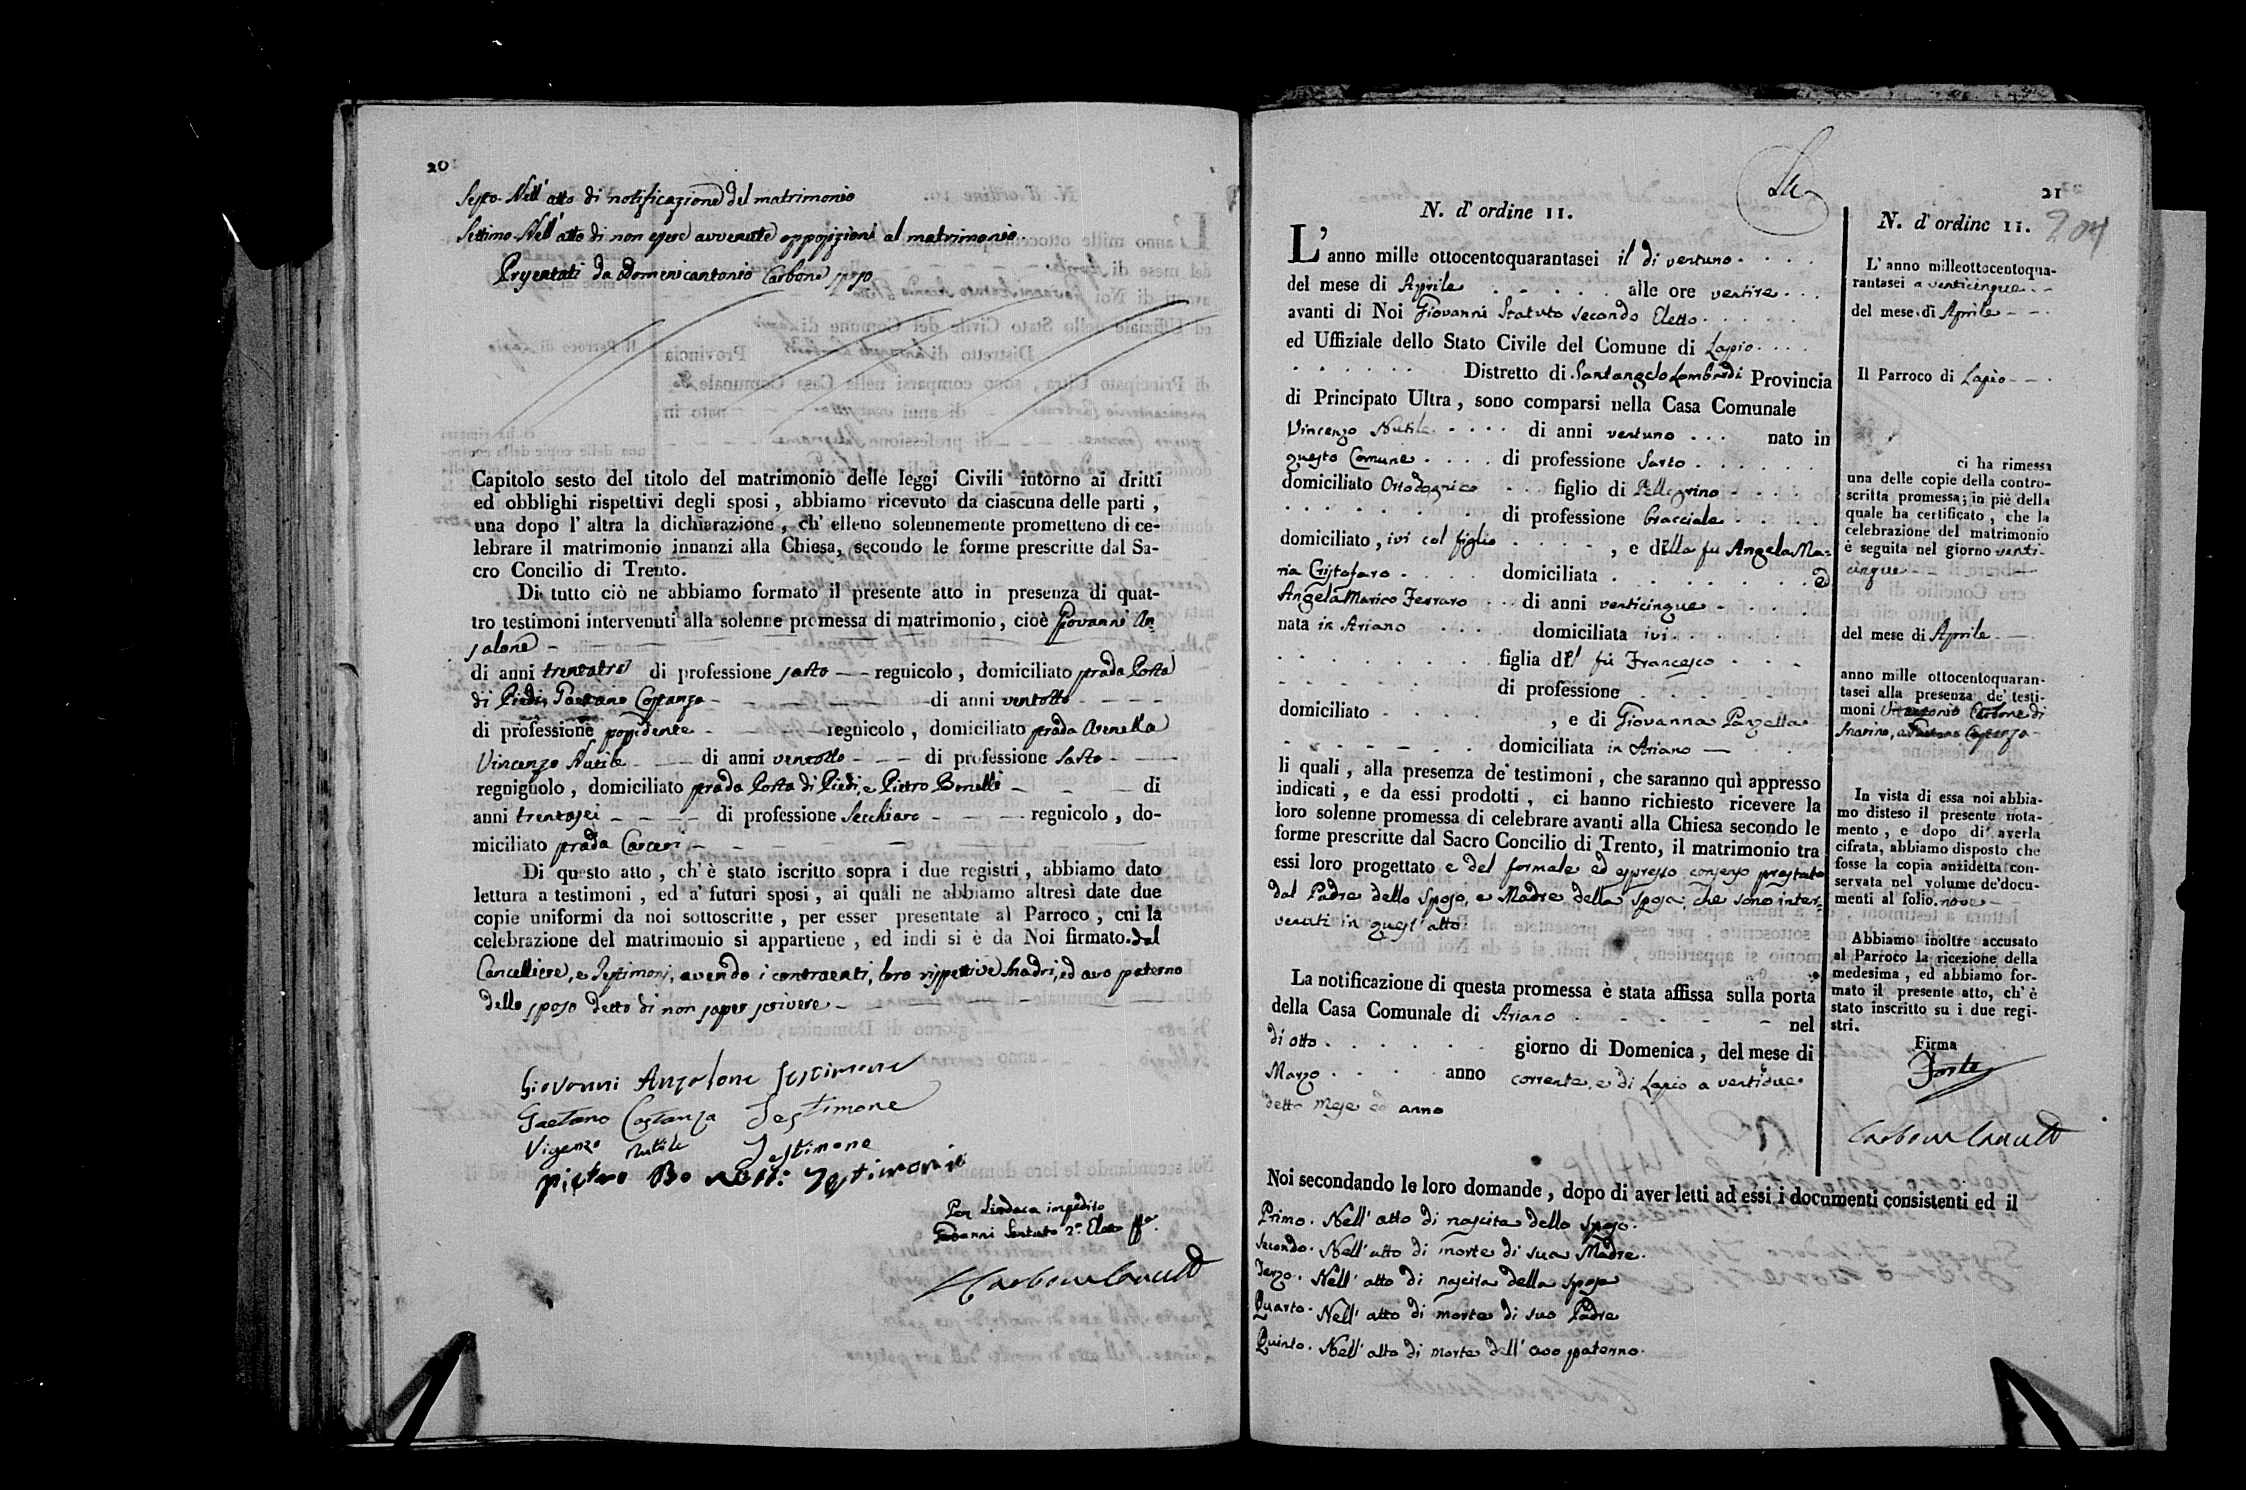 20
Sesto. Nell' atto di notificazione del matrimonio
Settimo. Nell' atto di non essere avvenute opposizioni al matrimonio.
Presentati da Domenicantonio Carbone sposo
Capitolo sesto del titolo del matrimonio delle leggi Civili intorno ai dritti
ed obblighi rispettivi degli sposi, abbiamo ricevuto da ciascuna delle parti,
una dopo l' altra la dichiarazione, ch' elleno solennemente promettono di ce-
lebrare il matrimonio innanzi alla Chiesa, secondo le forme prescritte dal Sa-
cro Concilio di Trento.
Di tutto ciò ne abbiamo formato il presente atto in presenza di quat-
tro testimoni intervenuti alla solenne promessa di matrimonio, cioè Giovanni An-
salone
di anni trentatre di professione sarto regnicolo, domiciliato strada Porta
di Piedi, Gaetano Costanza di anni ventotto
di professione possidente regnicolo, domiciliato strada Avenella
Vincenzo Nutile di anni ventotto di professione Sarto
regnignolo, domiciliato strada Porta di Piedi, e Pietro Bonelli di
anni trentasei di professione Secchiaro regnicolo, do-
miciliato strada Carceri
Di questo atto, ch' è stato iscritto sopra i due registri, abbiamo dato
lettura a testimoni, ed a' futuri sposi, ai quali ne abbiamo altresì date due
copie uniformi da noi sottoscritte, per esser presentate al Parroco, cui la
celebrazione del matrimonio si appartiene, ed indi si è da Noi firmato. dal
Cancelliere, e Testimoni, avendo i contraenti, loro rispettive Madri, ed avo paterno
dello sposo detto di non saper scrivere
Giovanni Anzalone Testimone
Gaetano Costanza Testimone
Vigenzo Nutile Testimone
pietro Bonelli Testimonio
Per Sindaco impedito
Giovanni Statuto 2º Eletto
21
N. d' ordine 11.
L' anno mille ottocentoquarantasei il di ventuno
del mese di Aprile alle ore ventitre
avanti di Noi Giovanni Statuto Secondo Eletto
ed Uffiziale dello Stato Civile del Comune di Lapio
Distretto di Santangelo Lombardi Provincia
di Principato Ultra, sono comparsi nella Casa Comunale
Vincenzo Nutile di anni ventuno nato in
questo Comune di professione Sarto
domiciliato figlio di Pellegrino
di professione bracciale
domiciliato, ivi col figlio, e della fu Angela Ma-
ria Cristofaro domiciliata ed
Angela Marica Ferraro di anni venticinque
nata in Ariano domiciliata ivi
figlia del fu Francesco
di professione
domiciliato, e di Giovanna Panzetta
domiciliata in Ariano
li quali, alla presenza de' testimoni, che saranno quì appresso
indicati, e da essi prodotti, ci hanno richiesto ricevere la
loro solenne promessa di celebrare avanti alla Chiesa secondo le
forme prescritte dal Sacro Concilio di Trento, il matrimonio tra
essi loro progettato e del formale ed espresso consenso prestato
dal Padre dello Sposo, e Madre della sposa, che sono inter-
venuti in quest' atto.
La notificazione di questa promessa è stata affissa sulla porta
della Casa Comunale di Ariano nel
di otto giorno di Domenica, del mese di
Marzo anno corrente, e di Lapio a ventidue
detto mese ed anno
Noi secondando le loro domande, dopo di aver letti ad essi i documenti consistenti ed il
Primo. Nell' atto di nascita dello sposo.
Secondo. Nell' atto di morte di sua Madre.
Terzo. Nell' atto di nascita della sposa
Quarto. Nell' atto di morte di suo Padre
Quinto. Nell' atto di morte dell' avo paterno.
N. d' ordine 11.
204
L' anno milleottocentoqua-
rantasei a venticinque
del mese di Aprile
Il Parroco di Lapio
ci ha rimessa
una delle copie della contro-
scritta promessa; in piè della
quale ha certificato, che la
celebrazione del matrimonio
è seguita nel giorno venti-
cinque
del mese di Aprile
anno mille ottocentoquaran-
tasei alla presenza de' testi-
moni Carbone di
Costanza
In vista di essa noi abbia-
mo disteso il presente nota-
mento, e dopo di averla
cifrata, abbiamo disposto che
fosse la copia anzidetta con-
servata nel volume de' docu-
menti al folio. nove
Abbiamo inoltre accusato
al Parroco la ricezione della
medesima, ed abbiamo for-
mato il presente atto, ch' è
stato inscritto su i due regi-
stri.
Firma
Forte